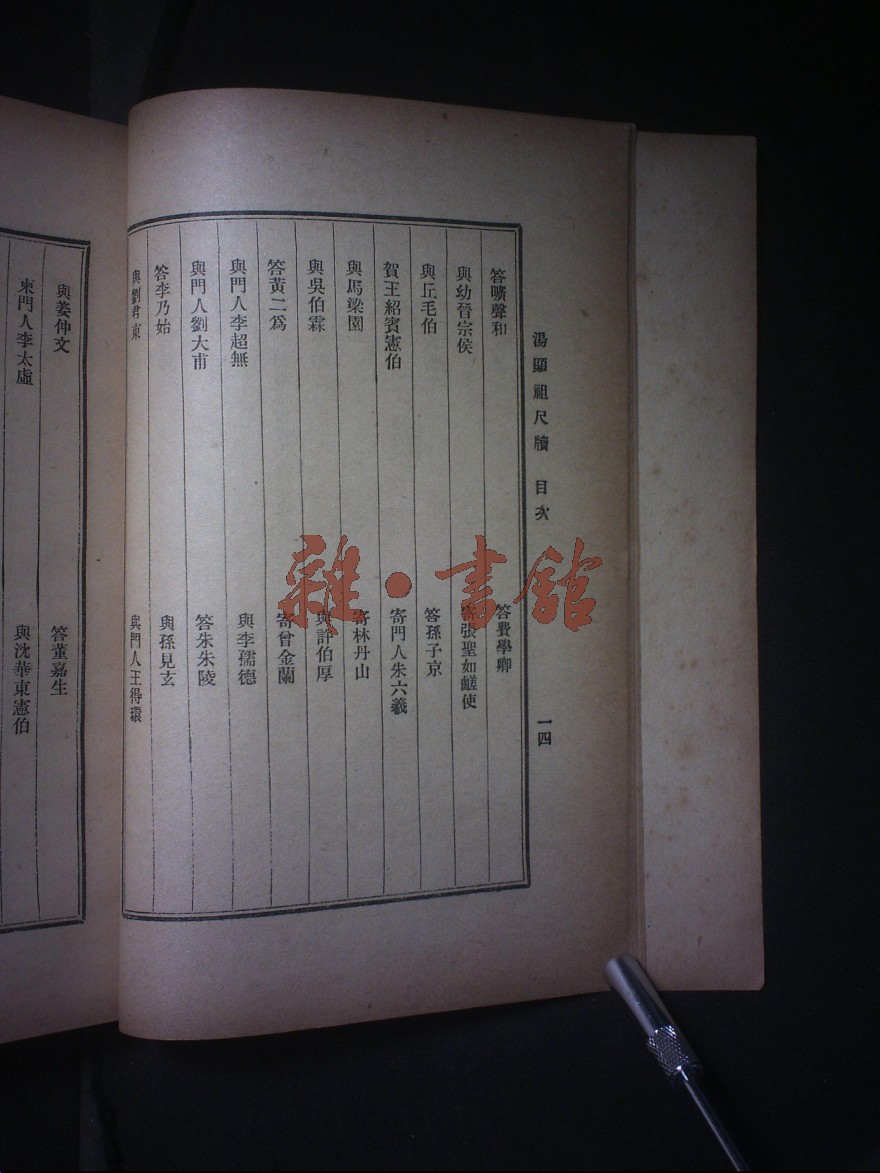 湯顯祖尺牘 目次 一四
答曠聲和 答費學卿
與幼晉宗侯 寄張聖如鹺使
與丘毛伯 答孫子京
賀王紹賓憲伯 寄門人朱六羲
與馬梁園 寄林丹山
與吳伯霖 與許伯厚
答黃二為 寄曾金蘭
與門人李超無 與李孺德
與門人劉大甫 答朱朱陵
答李乃始 與孫見玄
與劉君東 與門人王得環
與姜仲文 答董嘉生
柬門人李太虛 與沈華東憲伯
雜·書館